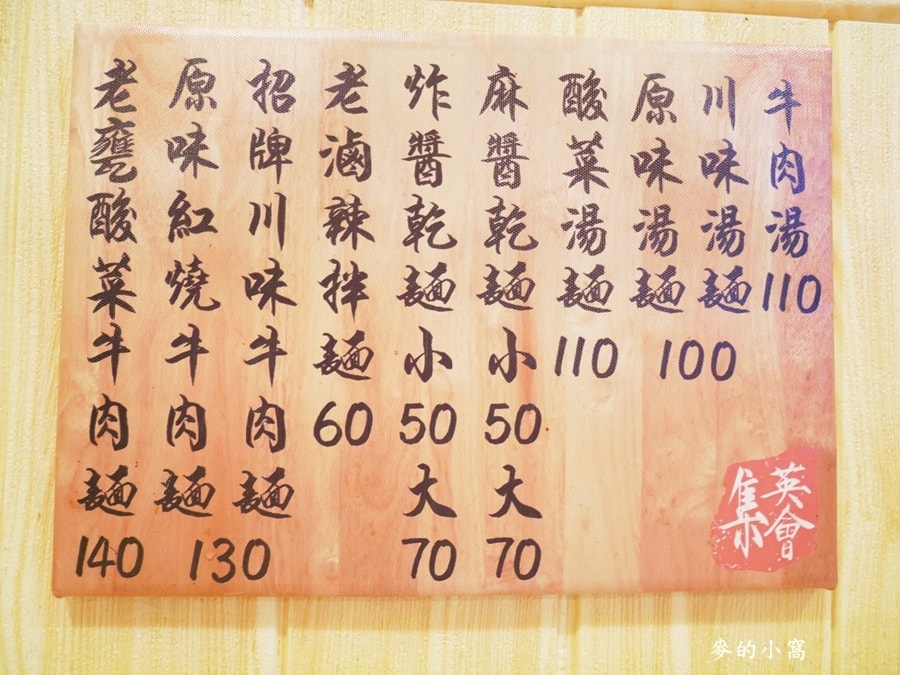 牛肉湯110
川味湯麵
原味湯麵
100
酸菜湯麵110
麻醬乾麵小50大70
炸醬乾麵小50大70
老滷辣拌麵60
招牌川味牛肉麵
原味紅燒牛肉麵
130
老甕酸菜牛肉麵140
英會
集
麥的小窩